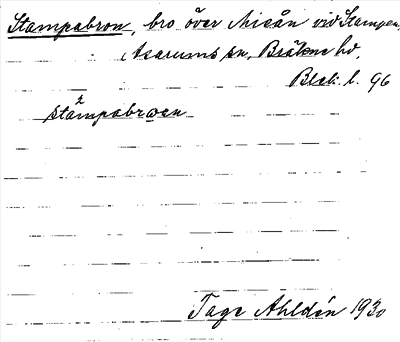 Stampabron, bro över Mieån vid Stampen,
Asarums sn, Bräkne hd,
Blek. l. 96
stampabroen
Tage Ahldén 1930